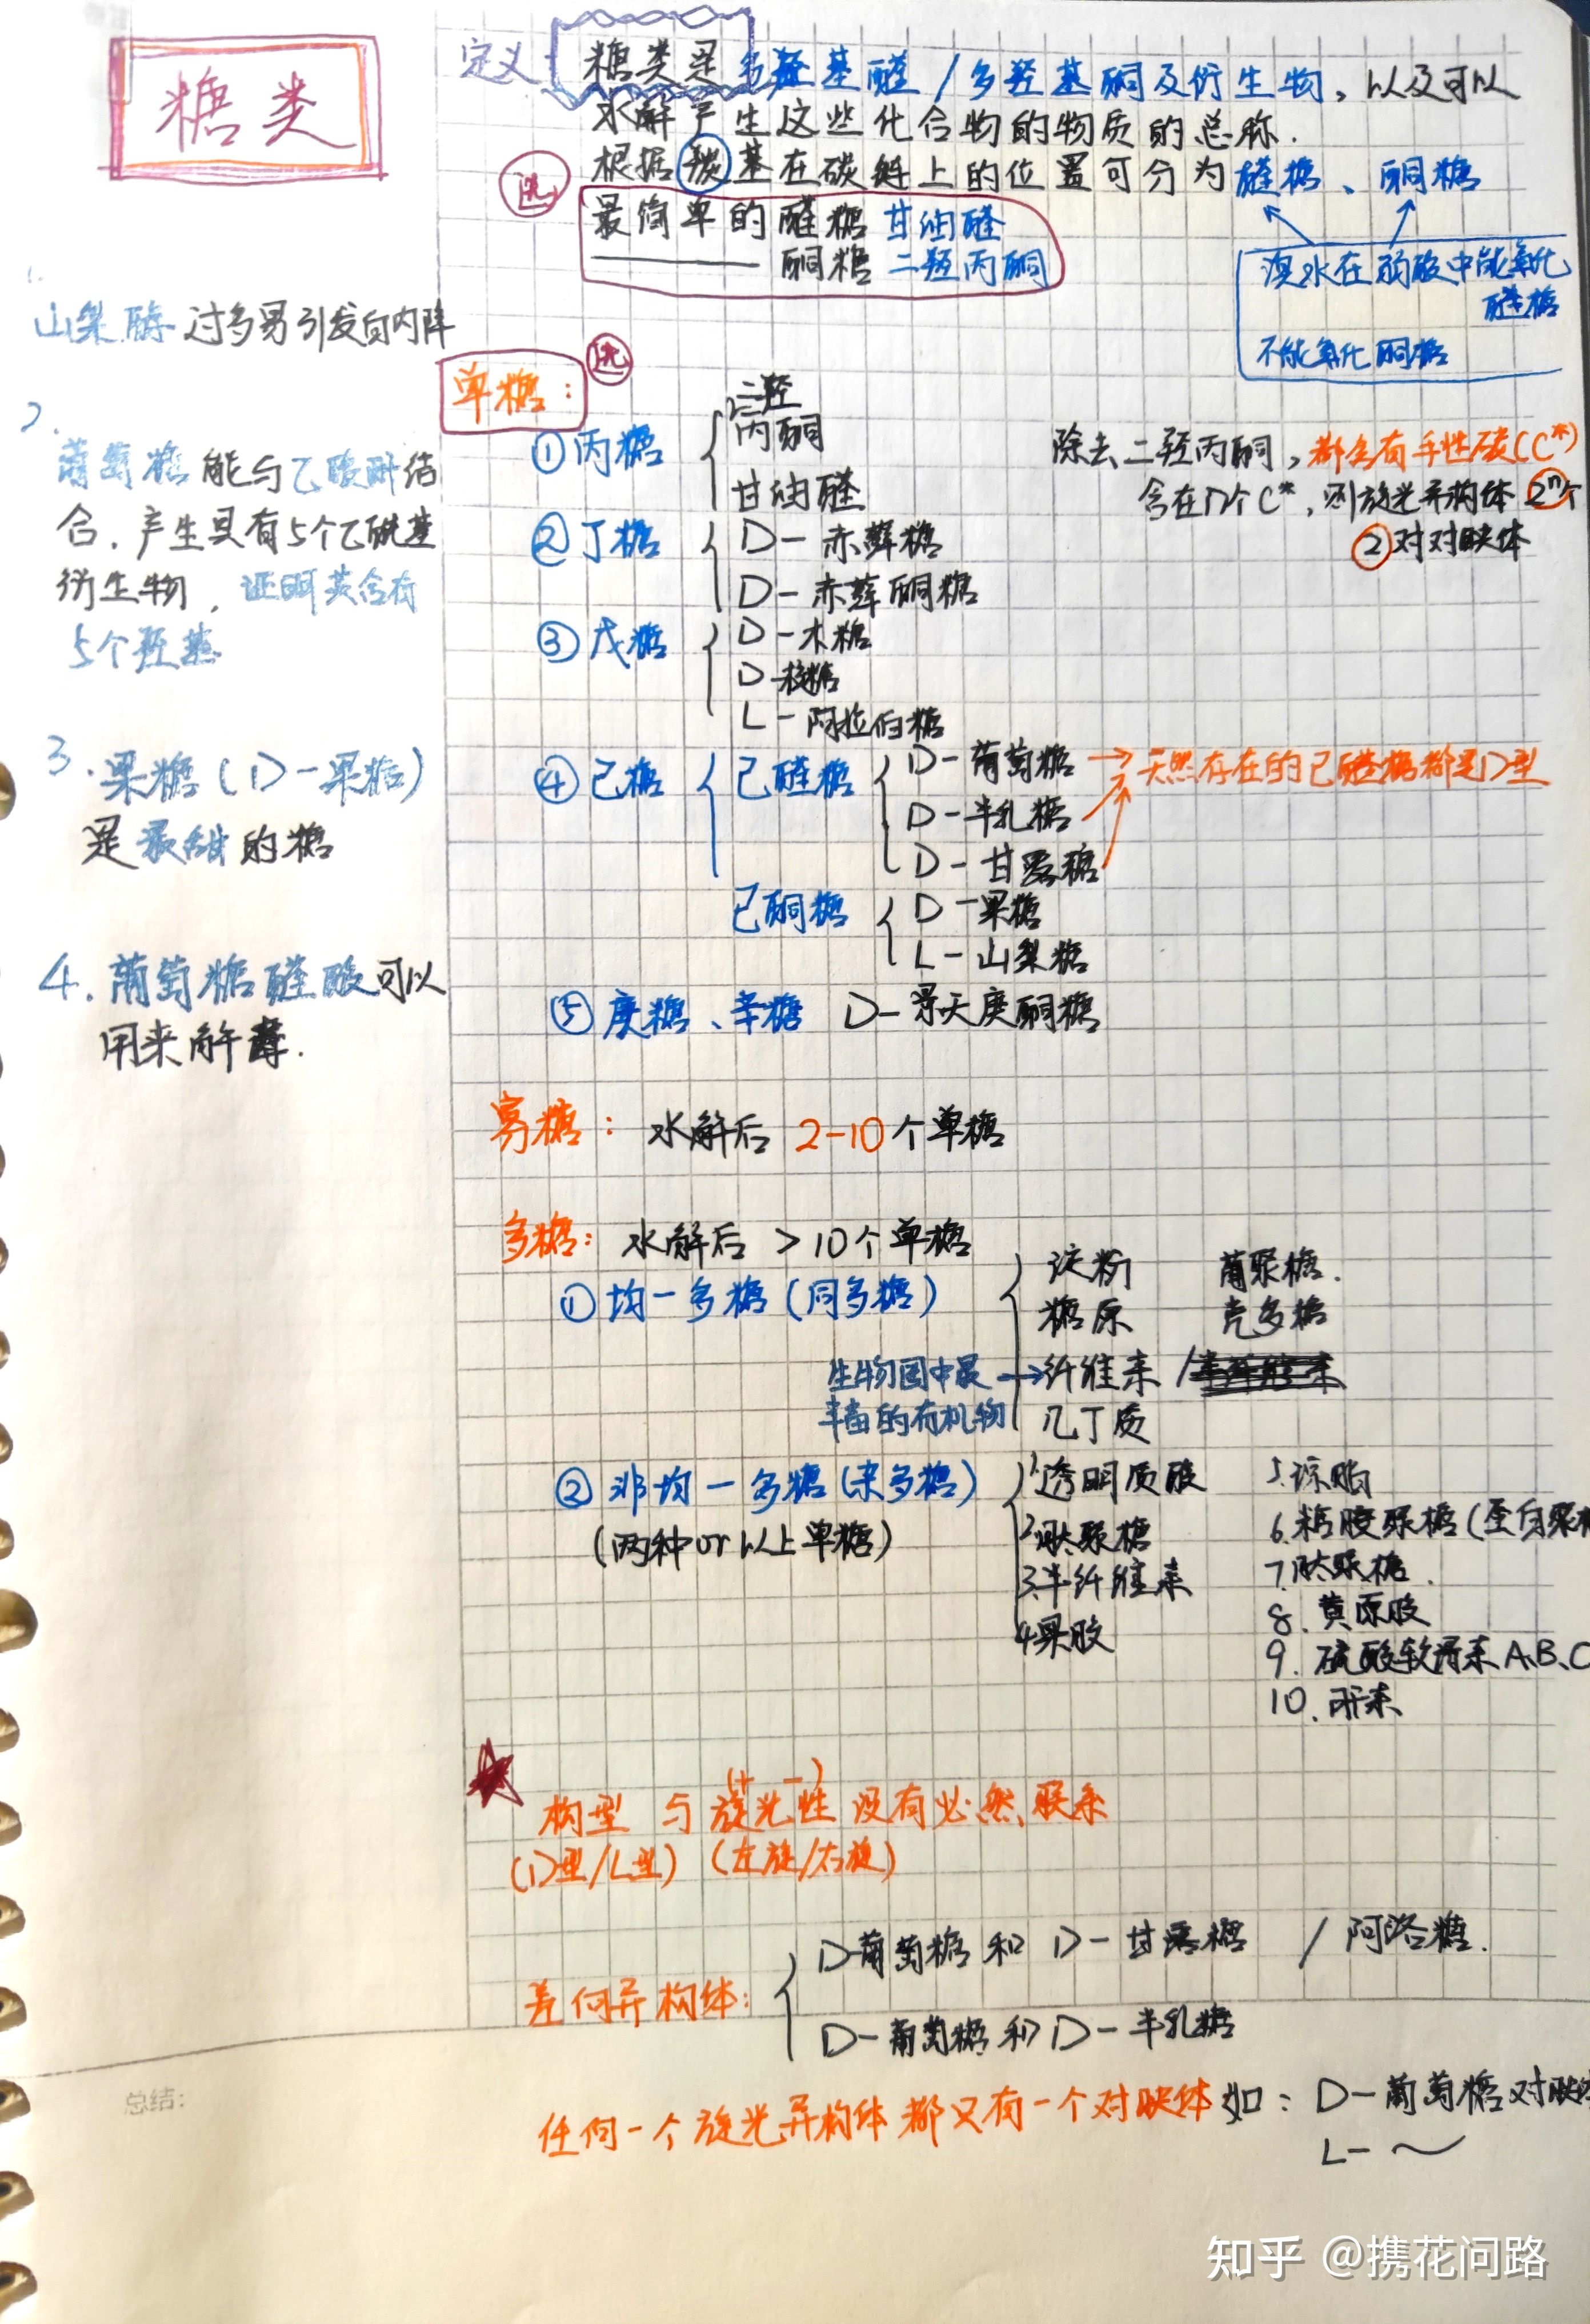 糖类
定义
糖类是多羟基醛/多羟基酮及衍生物,以及可以
水解产生这些化合物的物质的总称.
根据羰基在碳链上的位置可分为醛糖、酮糖
选
最简单的醛糖 甘油醛
——— 酮糖 二羟丙酮
溴水在弱酸中能氧化
醛糖
不能氧化酮糖
1.
山梨醇过多易引发白内障
2.
葡萄糖能与乙酸酐结
合.产生具有5个乙酰基
衍生物,证明其含有
5个羟基
3.果糖(D-果糖)
是最甜的糖
4.葡萄糖醛酸可以
用来解毒.
单糖:
选
①丙糖
二羟
丙酮
甘油醛
除去二羟丙酮,都含有手性碳(C*)
含在n个C*,则旋光异构体2ⁿ个
②对对映体
②丁糖
D-赤藓糖
D-赤藓酮糖
③戊糖
D-木糖
D-核糖
L-阿拉伯糖
④己糖
己醛糖
D-葡萄糖→天然存在的己醛糖都是D型
D-半乳糖
D-甘露糖
己酮糖
D-果糖
L-山梨糖
⑤庚糖、辛糖 D-景天庚酮糖
寡糖: 水解后 2-10个单糖
多糖: 水解后 >10个单糖
①均一多糖(同多糖)
淀粉 葡聚糖.
糖原 壳多糖
生物圈中最→纤维素/
丰富的有机物
几丁质
②非均一多糖(杂多糖)
(两种or以上单糖)
1透明质酸
2肽聚糖
3.半纤维素
4果胶
5.琼脂
6.糖胺聚糖(蛋白聚糖
7.肽聚糖.
8.黄原胶
9.硫酸软骨素A、B、C
10.肝素
(+ -)
构型 与 旋光性 没有必然联系
(D型/L型) (左旋/右旋)
差向异构体:
D-葡萄糖和 D-甘露糖 / 阿洛糖.
D-葡萄糖和D-半乳糖
总结:
任何一个旋光异构体都只有一个对映体 如: D-葡萄糖对映体
L-～
知乎 @携花问路